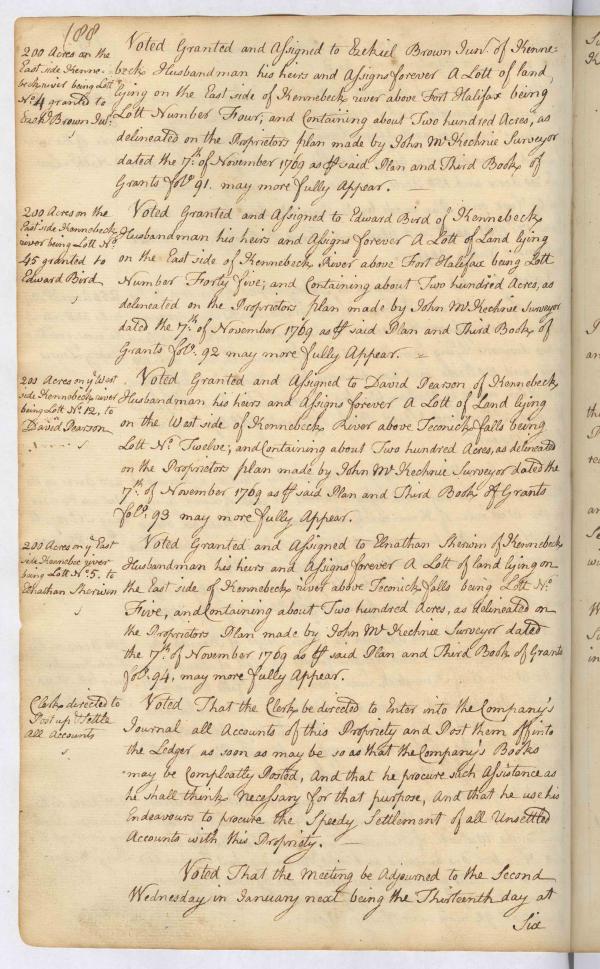 188
200 Acres on the
East side Kenne-
beck river being Lott
No. 4 granted to
Ezekl. Brown Junr.
Voted Granted and Assigned to Ezekiel Brown Junr. of Kenne=
beck Husbandman his heirs and Assigns forever A Lott of land,
lying on the East side of Kennebeck river above Fort Halifax being
Lott Number Four, and Containing about Two hundred Acres, as
delineated on the Proprietors plan made by John McKechnie Surveyor
dated the 7th. of November 1769 as ⅌ said Plan and Third Book of
Grants folo. 91. may more fully Appear. —
200 Acres on the
East side Kennebeck
river being Lott No.
45 granted to
Edward Bird
Voted Granted and Assigned to Edward Bird of Kennebeck
Husbandman his heirs and Assigns forever A Lott of Land lying
on the East side of Kennebeck River above Fort Halifax being Lott
Number Fforty five; and Containing about Two hundred Acres, as
delineated on the Proprietors plan made by John McKechnie Surveyor
dated the 7th. of November 1769 as ⅌ said Plan and Third Book of
Grants folo. 92 may more fully Appear. =
200 Acres on ye West
side Kennebeck river
being Lott No. 12, to
David Pearson
Voted Granted and Assigned to David Pearson of Kennebeck
Husbandman his heirs and Assigns forever A Lott of Land lying
on the West side of Kennebeck River above Teconick falls being
Lott No. Twelve; and Containing about Two hundred Acres, as delineated
on the Proprietors plan made by John McKechnie Surveyor dated the
7th. of November 1769 as ⅌ said Plan and Third Book of Grants
folo. 93 may more fully Appear.
200 Acres on ye East
side Kennebec river
being Lott No. 5. to
Elnathan Sherwin
Voted Granted and Assigned to Elnathan Sherwin of Kennebeck
Husbandman his heirs and Assigns forever A Lott of land lying on
the East side of Kennebeck river above Teconick falls being Lott No.
Five, and Containing about Two hundred Acres, as delineated on
the Proprietors Plan made by John McKechnie Surveyor dated
the 7th. of November 1769 as ⅌ said Plan and Third Book of Grants
folo. 94, may more fully Appear.
Clerk directed to
Post up & settle
all Accounts
Voted That the Clerk be directed to Enter into the Company's
Journal all Accounts of this Propriety and Post them off into
the Ledger as soon as may be so as that the Company's Books
may be Compleatly Posted, And that he procure such Assistance as
he shall think necessary for that purpose, And that he use his
Endeavours to procure the Speedy Settlement of all Unsettled
Accounts with this Propriety. —
Voted That the Meeting be Adjourned to the Second
Wednesday in January next being the Thirteenth day at
Six